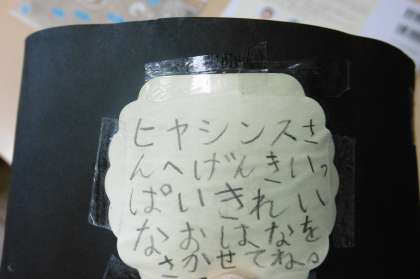 ヒヤシンスさ
んへげんきいっ
ぱいきれい
なおはなを
さかせてね。